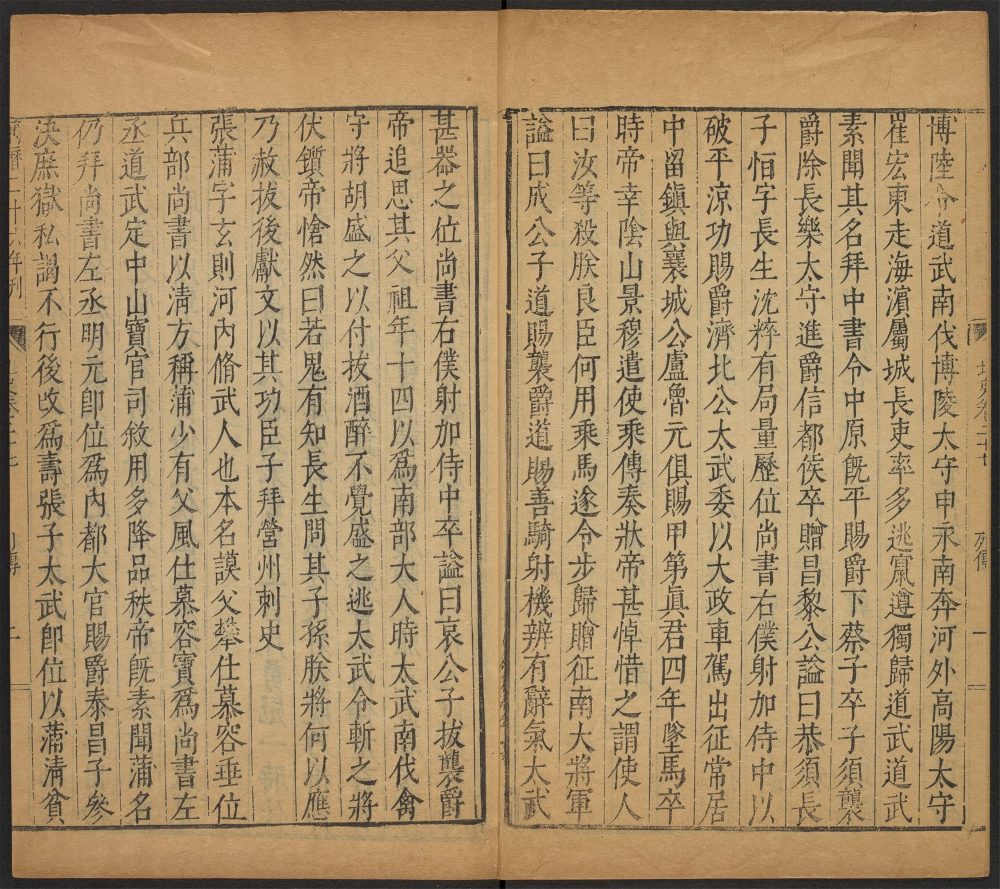 博陸令道武南伐博陵太守申永南奔河外高陽太守
崔宏東走海濱屬城長吏率多逃竄遵獨歸道武道武
素聞其名拜中書令中原旣平賜爵下蔡子卒子須襲
爵除長樂太守進爵信都侯卒贈昌黎公謚曰恭須長
子恒字長生沈粹有局量歷位尚書右僕射加侍中以
破平涼功賜爵濟北公太武委以大政車駕出征常居
中留鎮與襄城公盧魯元俱賜甲第眞君四年墜馬卒
時帝幸陰山景穆遣使乘傳奏狀帝甚悼惜之謂使人
曰汝等殺朕良臣何用乘馬遂令步歸贈征南大將軍
謚曰成公子道賜襲爵道賜善騎射機辨有辭氣太武
北史卷二十七 列傳 一
甚器之位尚書右僕射加侍中卒謚曰哀公子拔襲爵
帝追思其父祖年十四以爲南部大人時太武南伐禽
守將胡盛之以付拔酒醉不覺盛之逃太武令斬之將
伏鑕帝愴然曰若鬼有知長生問其子孫朕將何以應
乃赦拔後獻文以其功臣子拜營州刺史
張蒲字玄則河內脩武人也本名謨父攀仕慕容垂位
兵部尚書以淸方稱蒲少有父風仕慕容寶爲尚書左
丞道武定中山寶官司敘用多降品秩帝旣素聞蒲名
仍拜尚書左丞明元卽位爲內都大官賜爵泰昌子參
決庶獄私謁不行後改爲壽張子太武卽位以蒲淸貧
萬曆二十六年刊